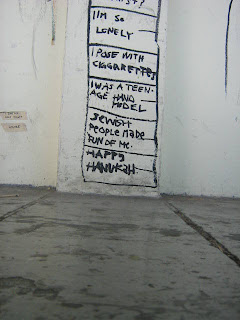 I'M SO
LONELY
I POSE WITH
CIGGARETTES
I WAS A TEEN-
AGE HAND
MODEL
JEWISH
PEOPLE MADE
FUN OF ME.
HAPPY
HANUKAH